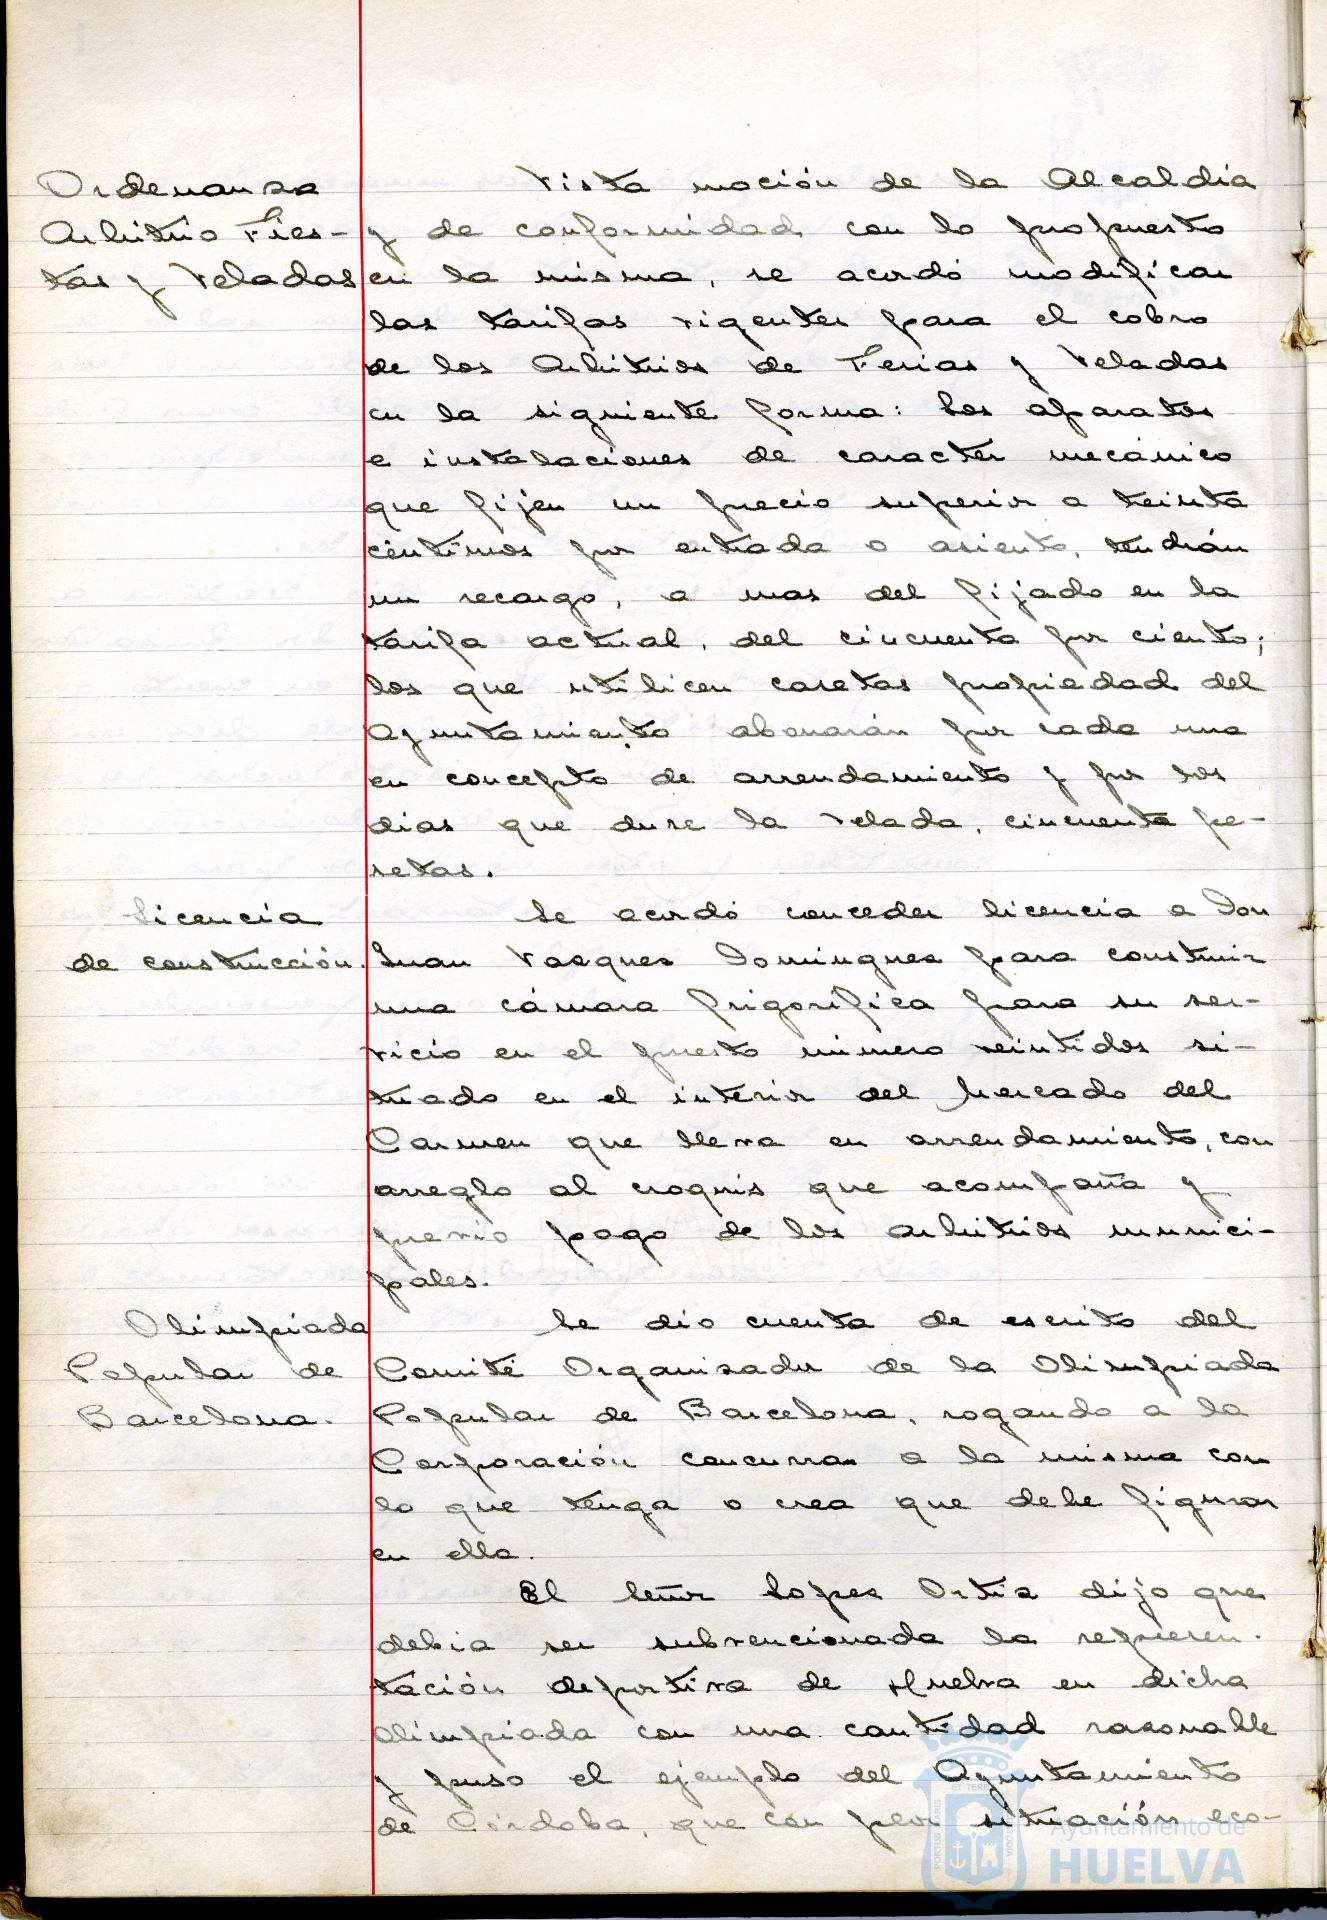 Ordenanza
Arbitrio Fies-
tas y Veladas
Vista moción de la Alcaldía
y de conformidad con lo propuesto
en la misma, se acordó modificar
las tarifas vigentes para el cobro
de los Arbitrios de Ferias y Veladas
en la siguiente forma: Los aparatos
e instalaciones de caracter mecánico
que fijen un precio superior a treinta
céntimos por entrada o asiento, tendrán
un recargo, a mas del fijado en la
tarifa actual, del cincuenta por ciento;
los que utilicen casetas propiedad del
Ayuntamiento abonarán por cada una
en concepto de arrendamiento y por los
dias que dure la velada, cincuenta pe-
setas.
Licencia
de construcción.
Se acordó conceder licencia a Don
Juan Vazquez Dominguez para construir
una cámara frigorífica para su ser-
vicio en el puesto número veintidos si-
tuado en el interior del Mercado del
Carmen que lleva en arrendamiento, con
arreglo al croquis que acompaña y
previo pago de los arbitrios munici-
pales.
Olimpiada
Popular de
Barcelona.
Se dió cuenta de escrito del
Comité Organizador de la Olimpiada
Popular de Barcelona, rogando a la
Corporación concurra a la misma con
lo que tenga o crea que debe figurar
en ella.
El señor Lopez Ortiz dijo que
debia ser subvencionada la represen-
tación deportiva de Huelva en dicha
Olimpiada con una cantidad razonable
y puso el ejemplo del Ayuntamiento
de Córdoba, que con peor situación eco-
Ayuntamiento de
HUELVA